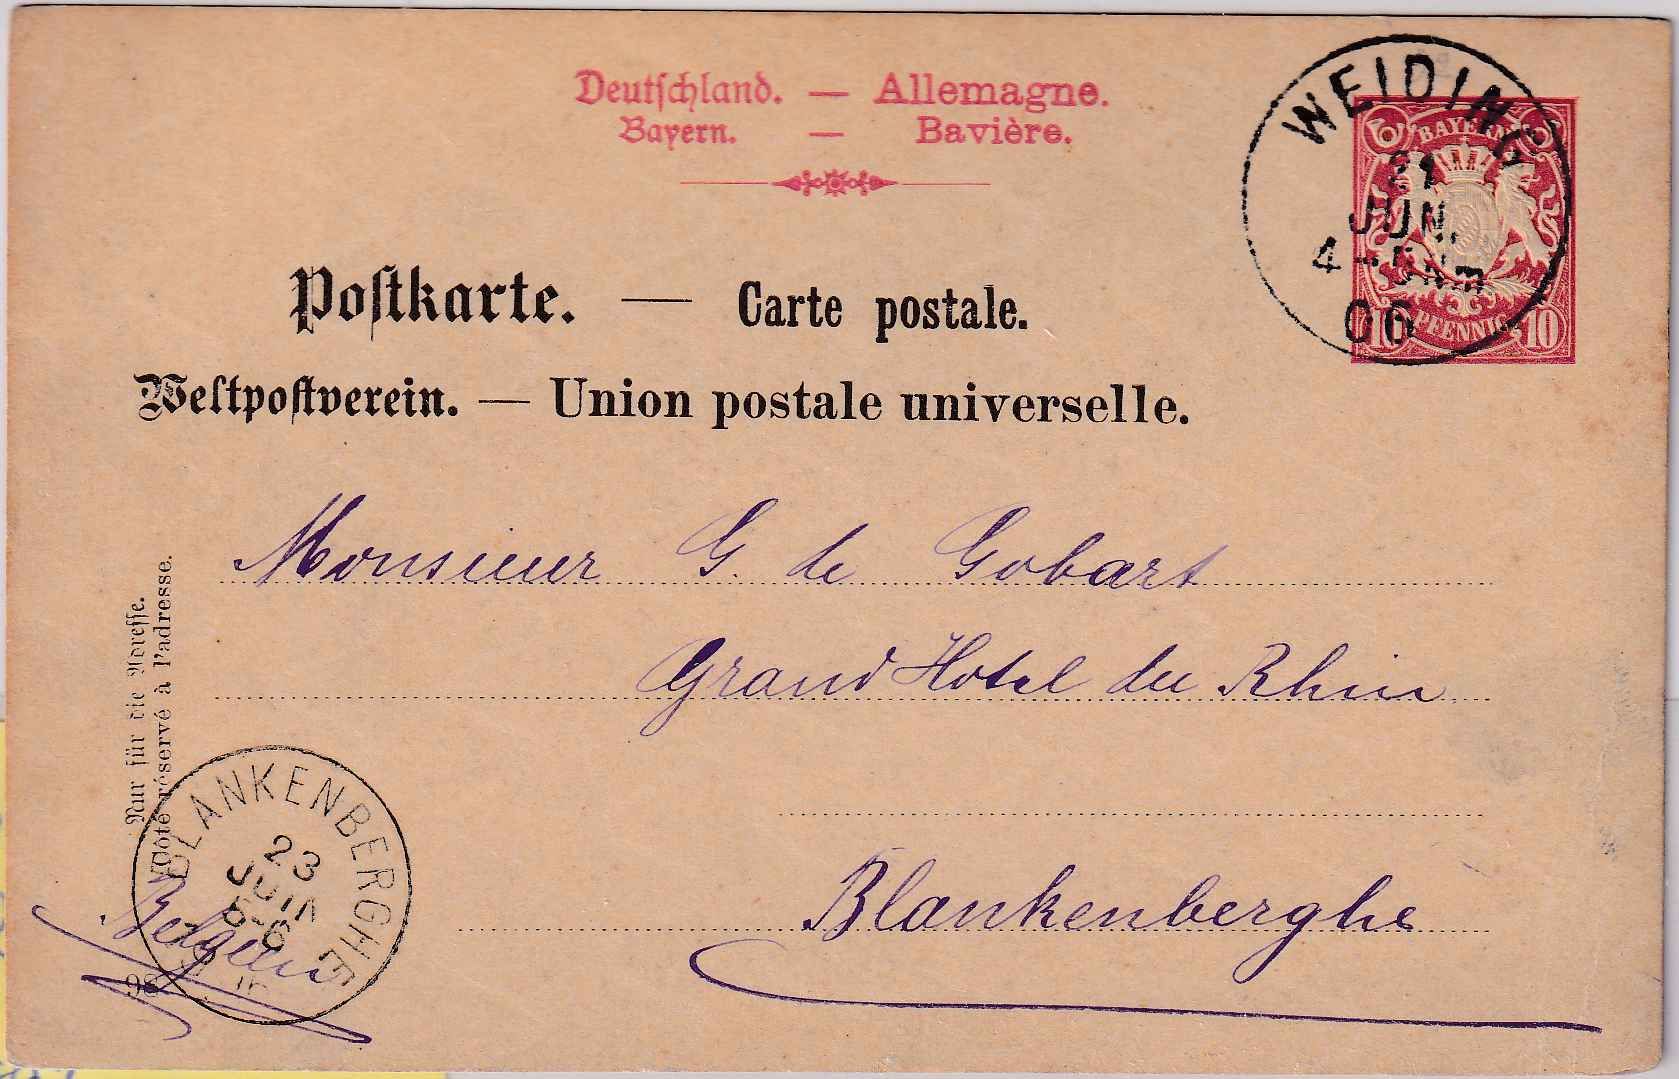 Deutschland. — Allemagne.
Bayern. — Bavière.
WEIDING
21
JUN.
4-5 Nm
06
BAYERN
10 PFENNIG 10
Postkarte. — Carte postale.
Weltpostverein. — Union postale universelle.
Monsieur G. de Gobart
Grand Hotel du Rhin
Blankenberghe
Belgien
Nur für die Adresse.
Côté réservé à l'adresse.
BLANKENBERGHE
23
JUIN
5-6
98